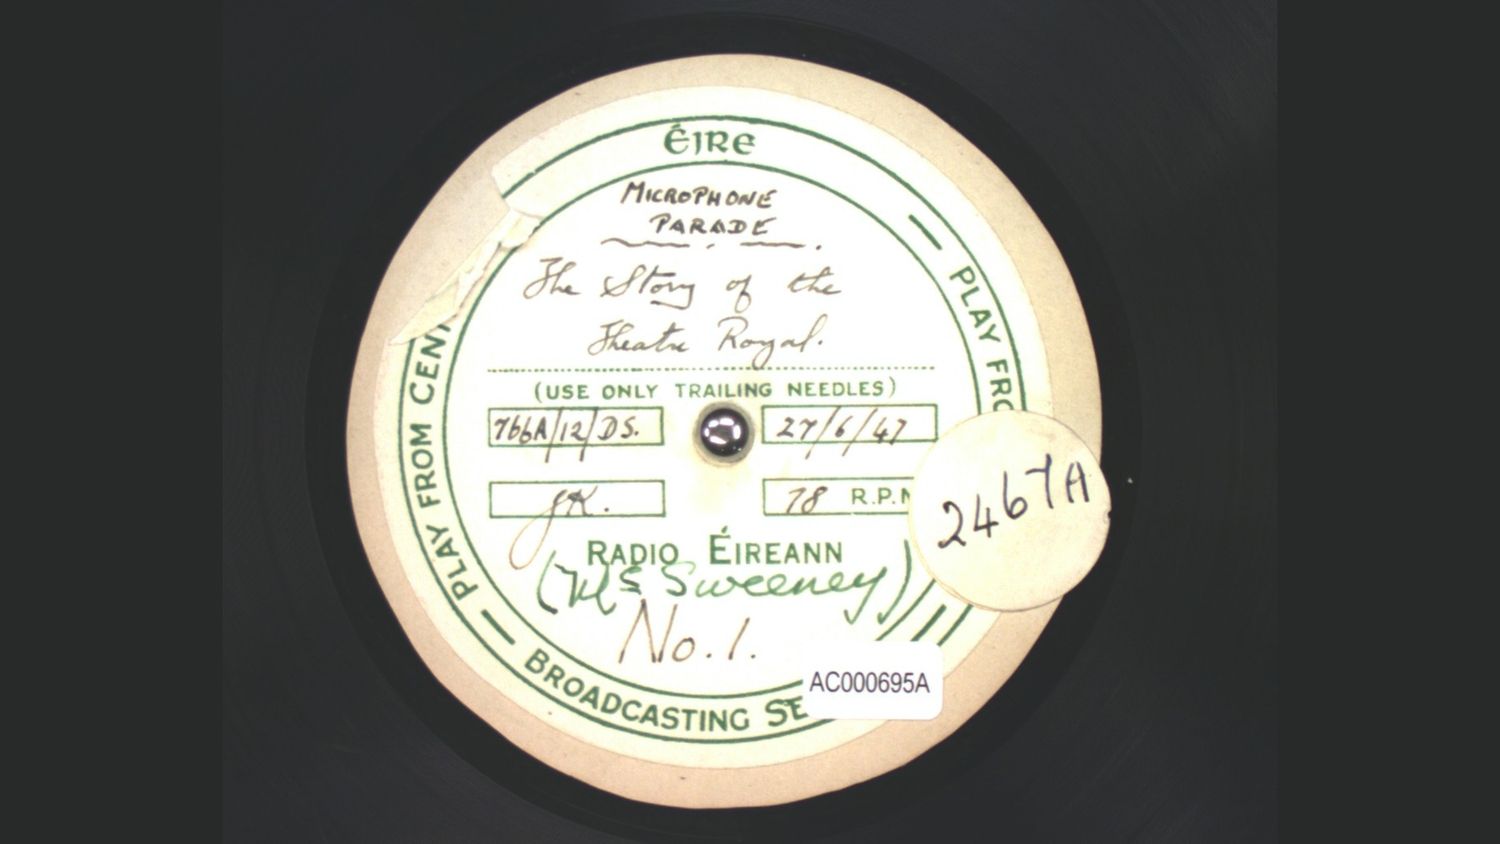 ÉIRE
MICROPHONE
PARADE
The Story of the
Theatre Royal.
(USE ONLY TRAILING NEEDLES)
766A/12/DS.
27/6/47
JK.
78 R.P.M
RADIO ÉIREANN
(Mc Sweeney)
No. 1.
— PLAY FROM CEN
— PLAY FRO
BROADCASTING SE
2467A
AC000695A